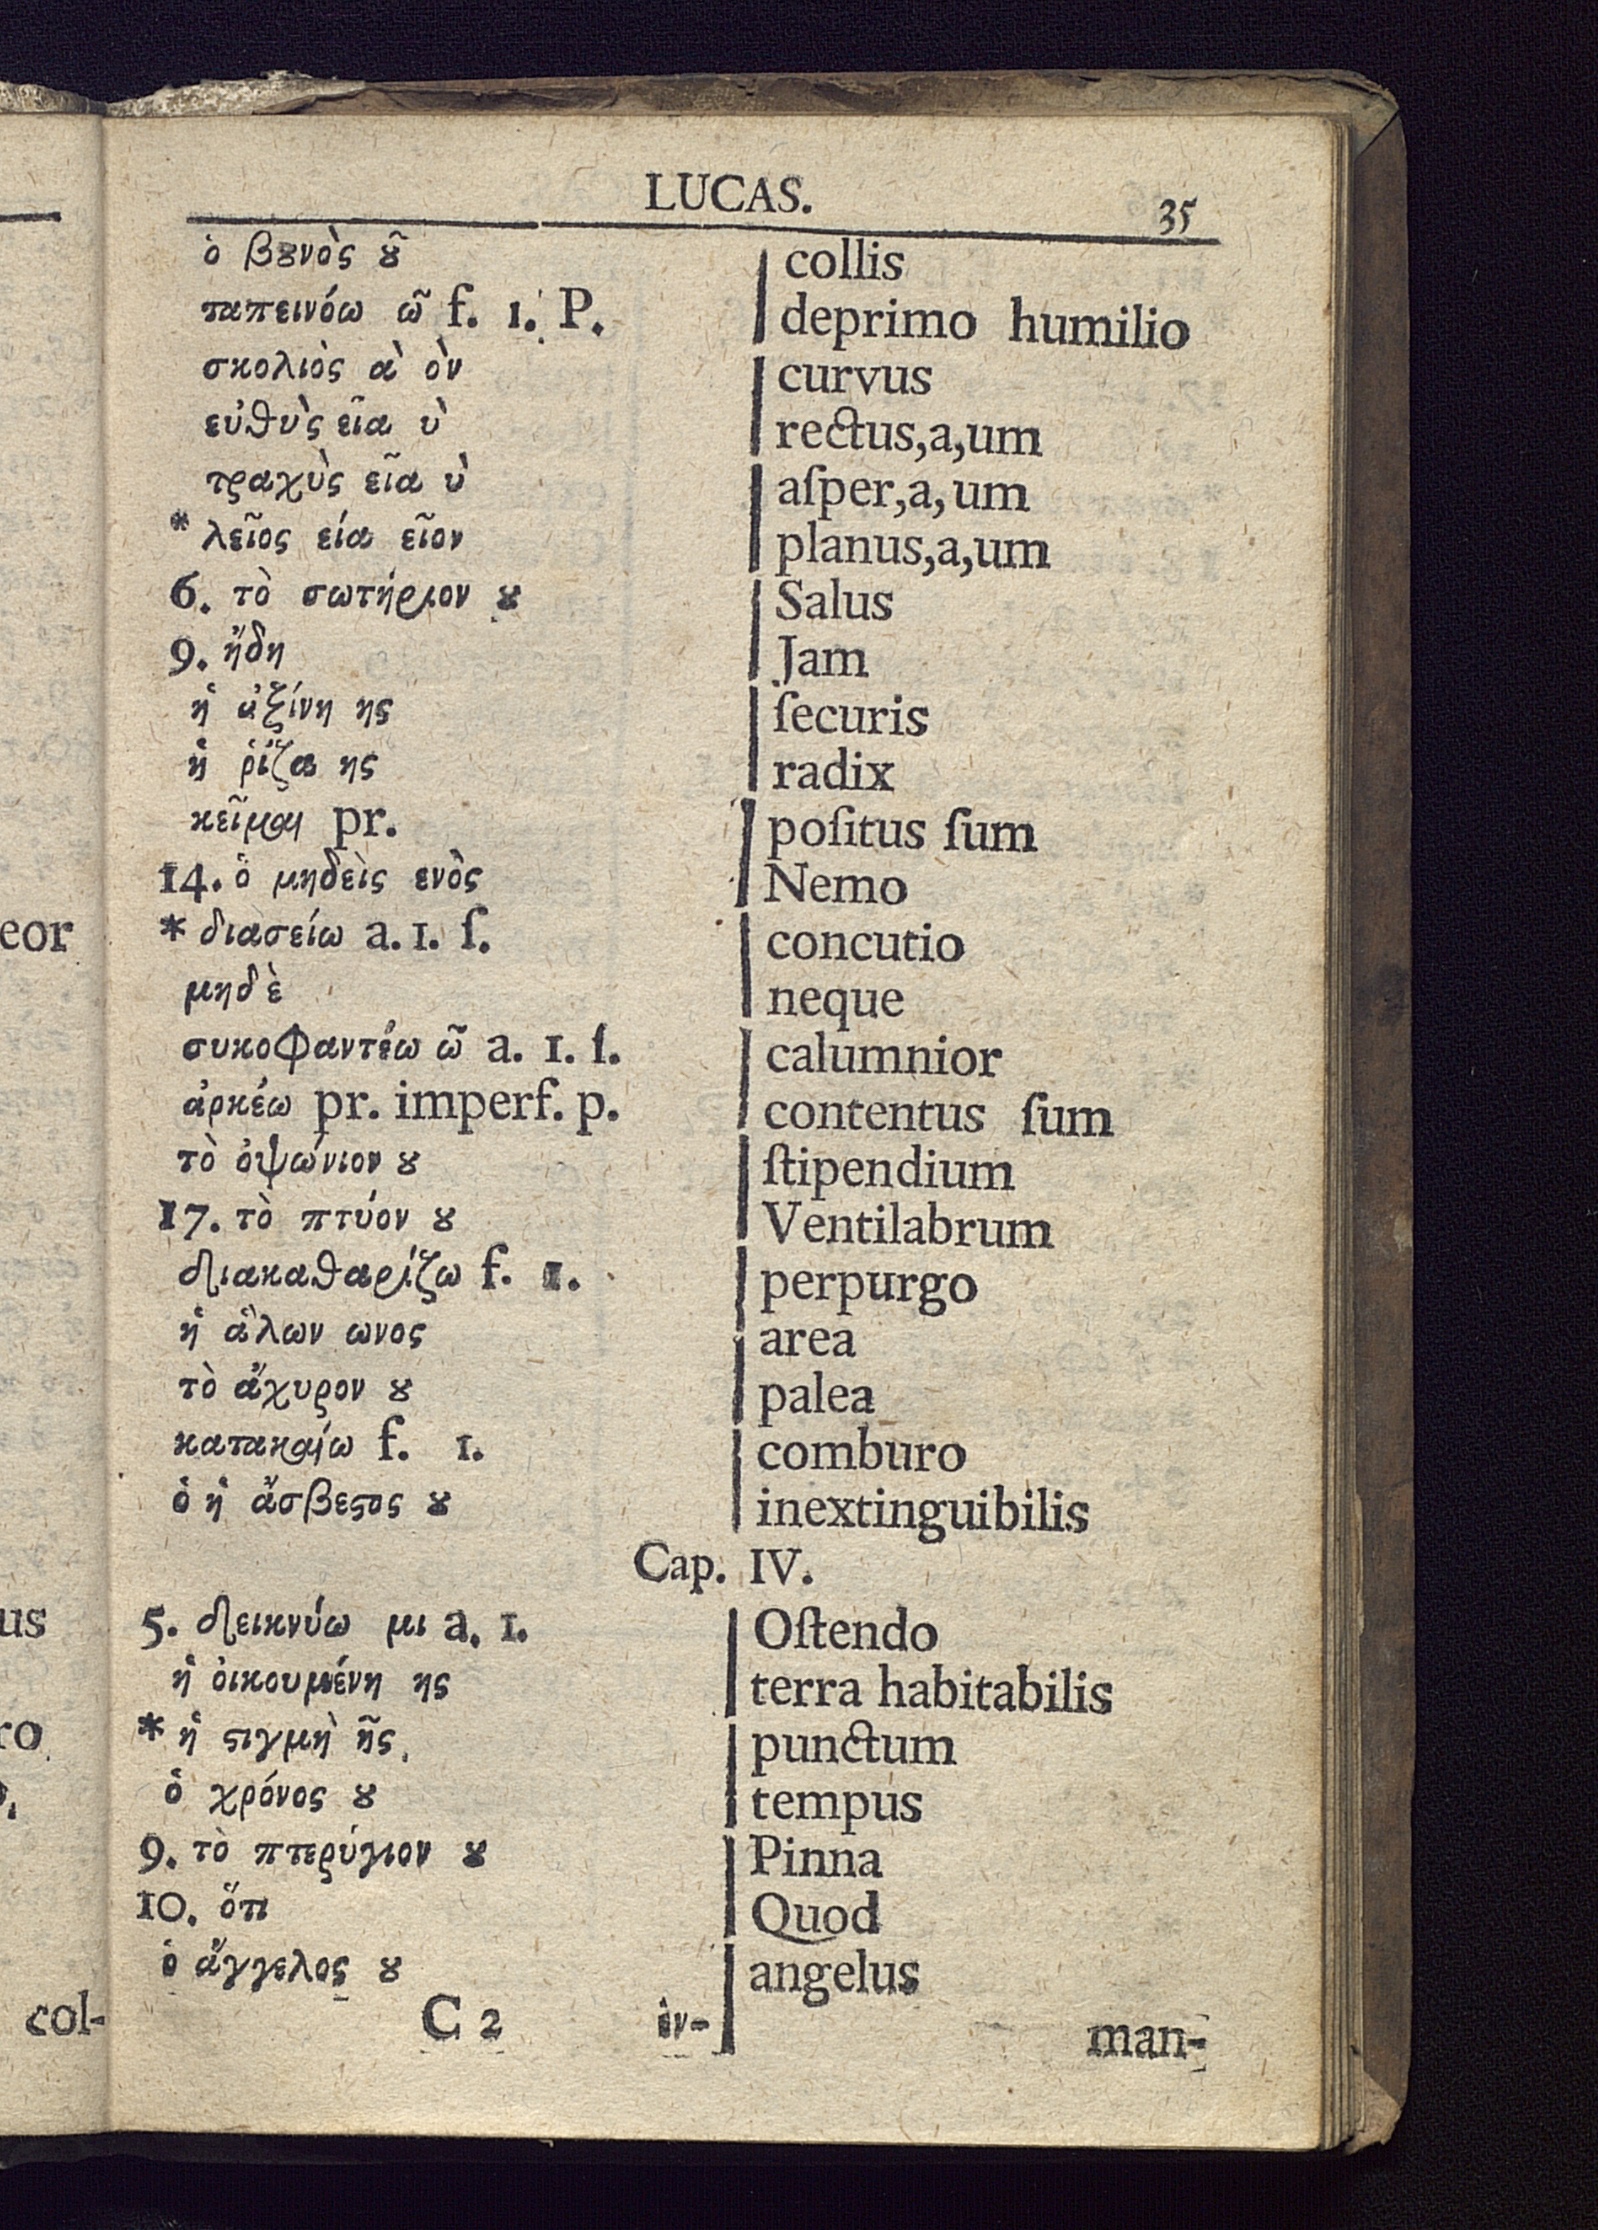 LUCAS. 35
ὁ βȣνὸς ȣ͂ collis
ταπεινόω ῶ f. 1. P. deprimo humilio
σκολιὸς ὰ ὸν curvus
εὐθὺς εῖα ὺ rectus,a,um
τραχὺς εῖα ὺ aſper,a,um
* λεῖος εία εῖον planus,a,um
6. τὸ σωτήριον ȣ Salus
9. ἤδη Jam
ἡ ἀξίνη ης ſecuris
ἡ ῥίζα ης radix
κεῖμαι pr. poſitus ſum
14. ὁ μηδεὶς ενὸς Nemo
* διασείω a. 1. ſ. concutio
μηδὲ neque
συκοφαντέω ῶ a. 1. ſ. calumnior
ἀρκέω pr. imperf. p. contentus ſum
τὸ ὀψώνιον ȣ ſtipendium
17. τὸ πτύον ȣ Ventilabrum
διακαθαρίζω f. 1. perpurgo
ἡ ἅλων ωνος area
τὸ ἄχυρον ȣ palea
κατακαίω f. 1. comburo
ὁ ἡ ἄσβεϛος ȣ inextinguibilis
Cap. IV.
5. δεικνύω μι a. 1. Oſtendo
ἡ οἰκουμένη ης terra habitabilis
* ἡ ϛιγμὴ ῆς. punctum
ὁ χρόνος ȣ tempus
9. τὸ πτερύγιον ȣ Pinna
10. ὅτι Quod
ὁ ἄγγελος ȣ angelus
C 2 ἐν- man-
eor
us
ro
col-